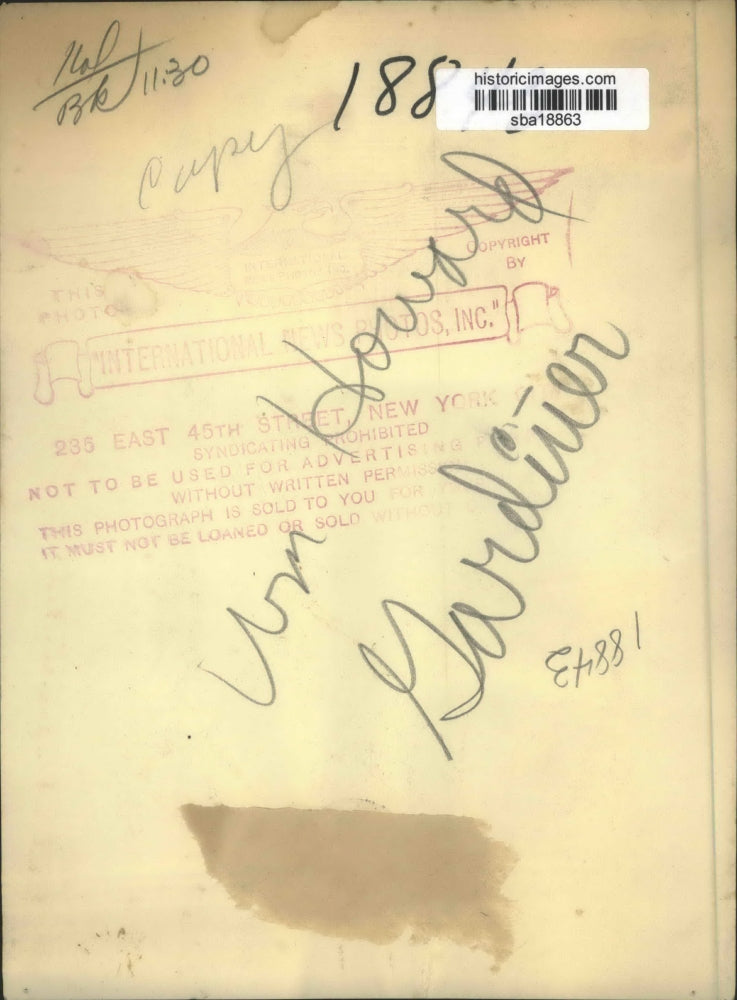 11:30
188
historicimages.com
sba18863
Copy
INTERNATIONAL
THIS
PHOTO
COPYRIGHT
BY
"INTERNATIONAL NEWS PHOTOS, INC."
235 EAST 45TH STREET, NEW YORK
SYNDICATING PROHIBITED
NOT TO BE USED FOR ADVERTISING
WITHOUT WRITTEN PERMISS
THIS PHOTOGRAPH IS SOLD TO YOU FOR
IT MUST NOT BE LOANED OR SOLD WITHOUT
Wm Howard
Gardiner
18843